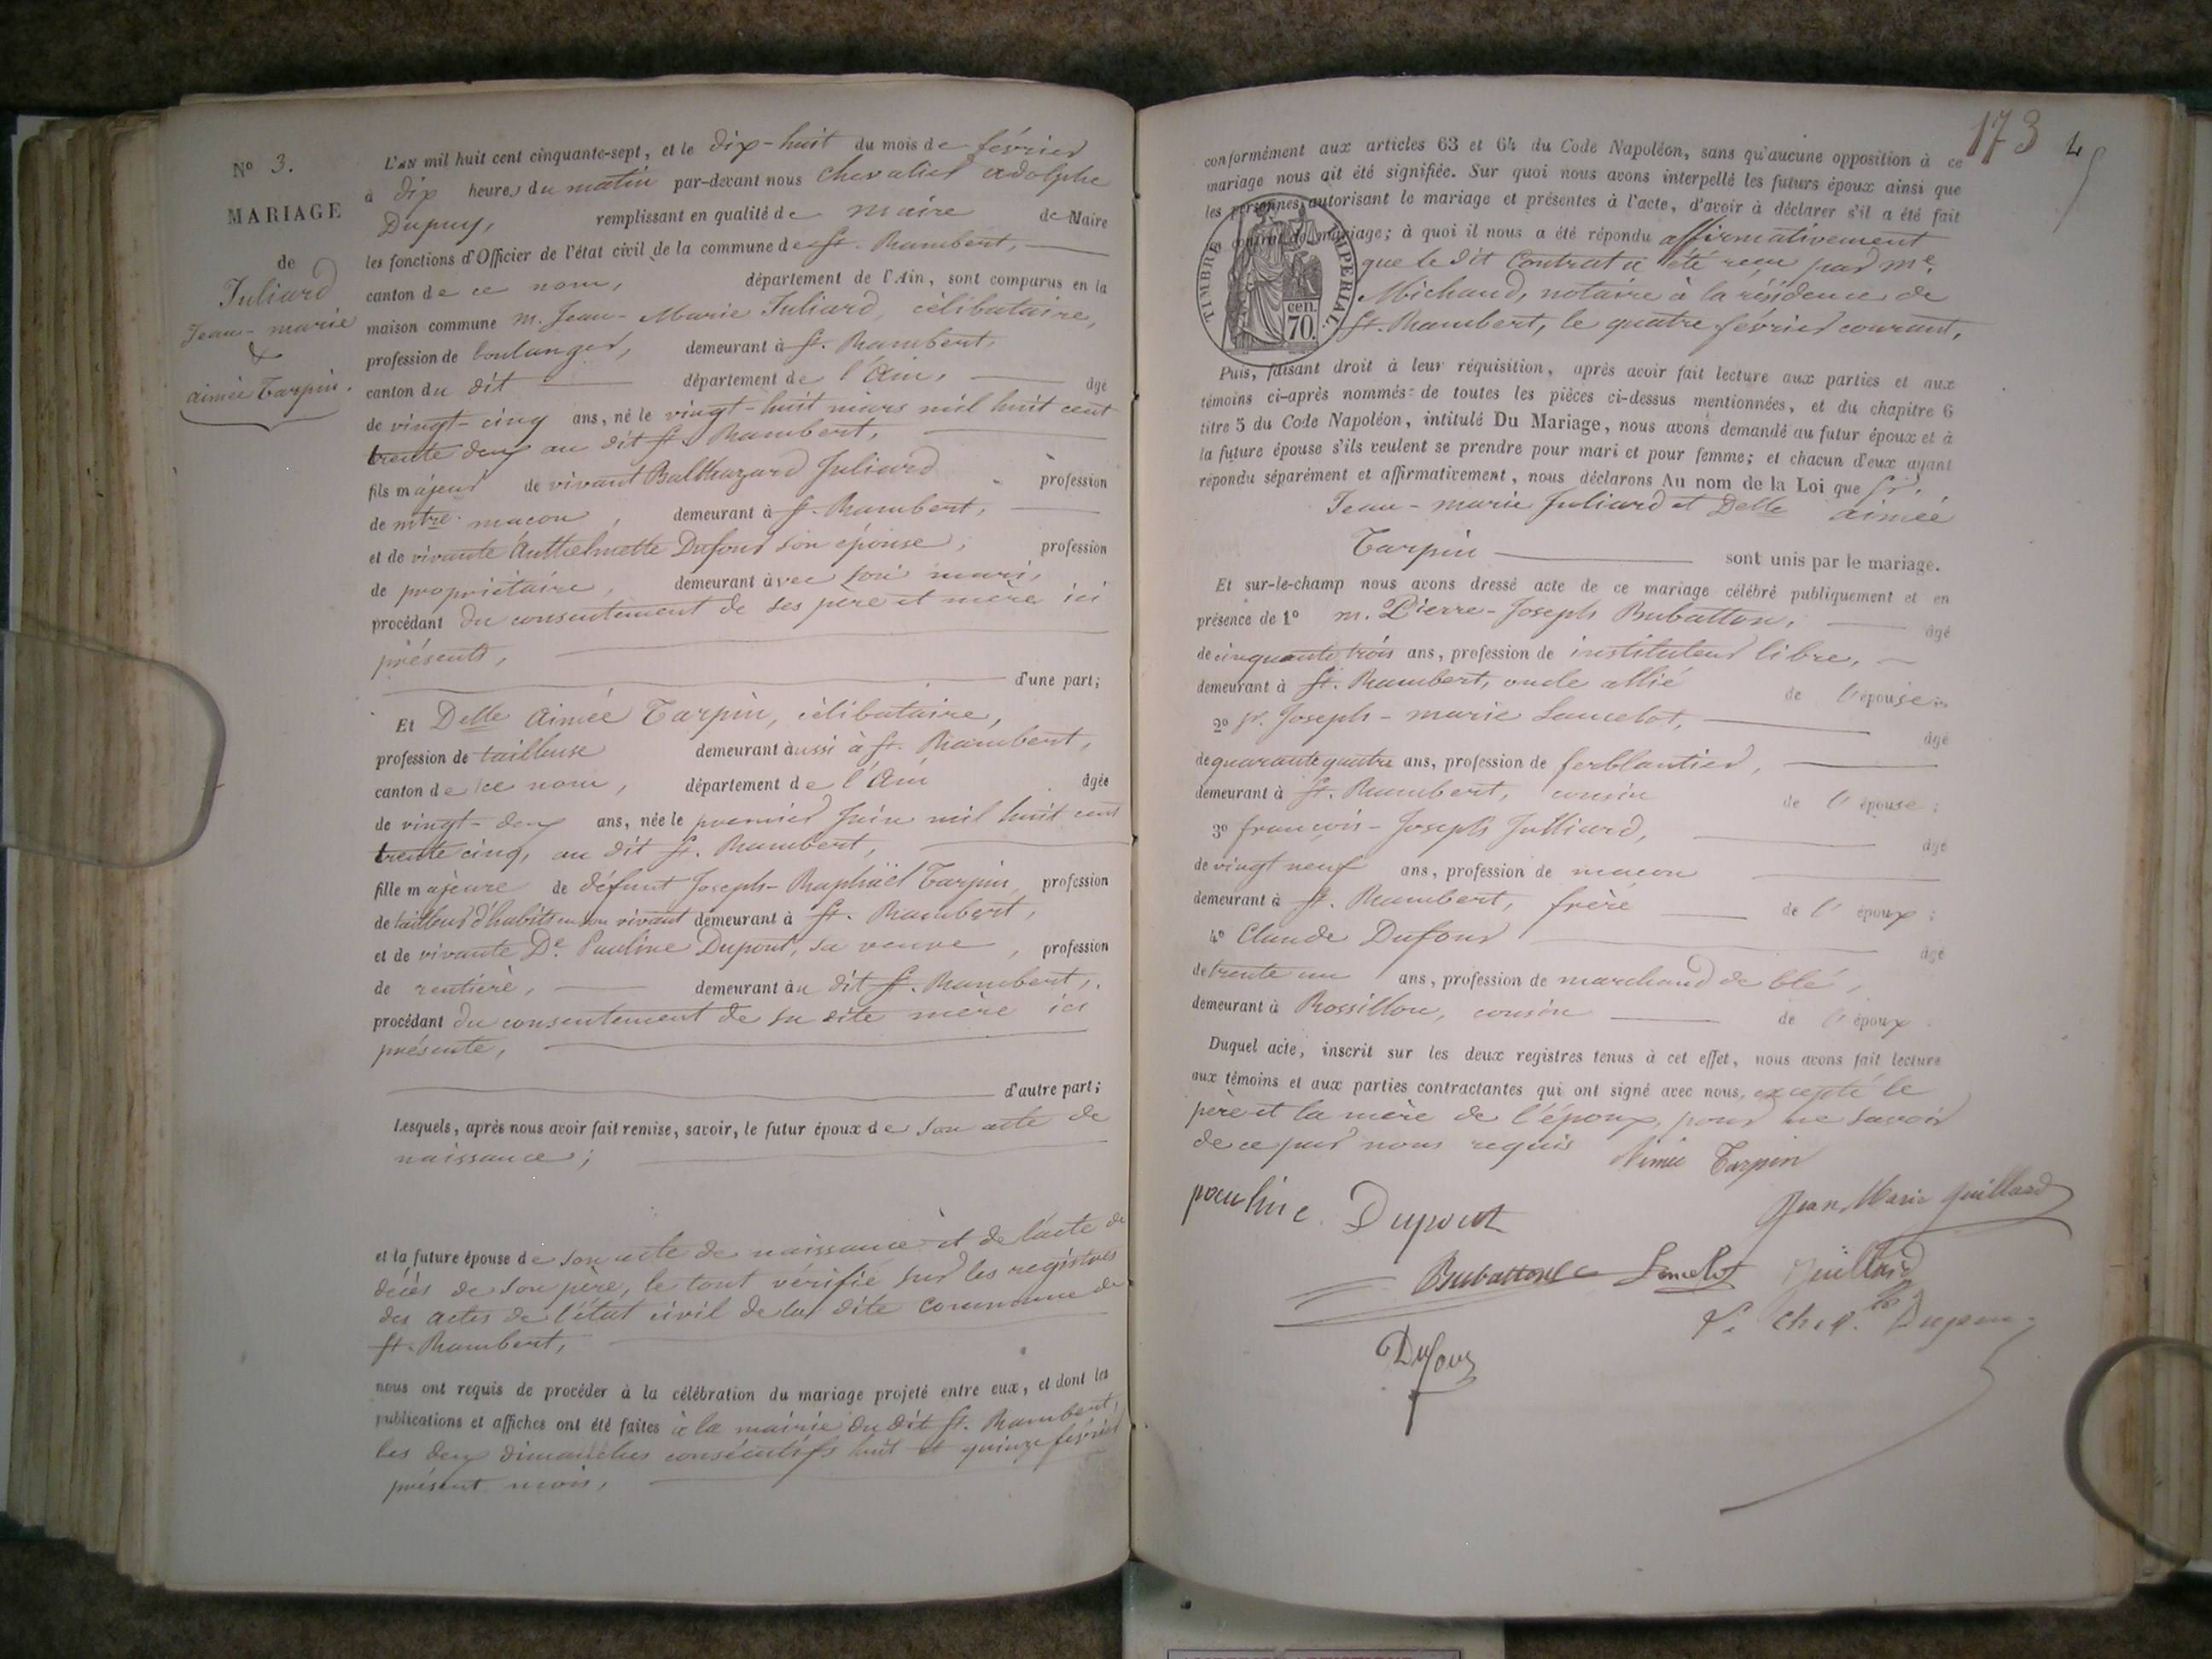 N° 3.
MARIAGE
de
Juliard
Jean-marie
&
aimée Tarpin.
L'AN mil huit cent cinquante-sept, et le dix-huit du mois de février
à dix heures du matin par-devant nous Chevalier adolphe
Dupuy, remplissant en qualité de maire de Maire
les fonctions d'Officier de l'état civil de la commune de St. Rambert,
canton de ce nom, département de l'Ain, sont comparus en la
maison commune m. Jean-Marie Juliard, célibataire,
profession de boulanger, demeurant à St. Rambert,
canton du dit département de l'Ain, âgé
de vingt-cinq ans, né le vingt-huit mars mil huit cent
trente deux au dit St. Rambert,
fils majeur de vivant Balthazard Juliard profession
de mtre macon, demeurant à St. Rambert,
et de vivante Anthelmette Dufour son épouse, profession
de propriétaire, demeurant avec son mari,
procédant du consentement de ses père et mère ici
présents,
d'une part;
Et Delle Aimée Tarpin, célibataire,
profession de tailleuse demeurant aussi à St. Rambert,
canton de ce nom, département de l'Ain âgée
de vingt-deux ans, née le premier Juin mil huit cent
trente cinq, au dit St. Rambert,
fille majeure de défunt Joseph-Raphaël Tarpin, profession
de tailleur d'habits en son vivant demeurant à St. Rambert,
et de vivante De. Pauline Dupont, sa veuve, profession
de rentière, demeurant au dit St. Rambert,
procédant du consentement de sa dite mère ici
présente,
d'autre part;
Lesquels, après nous avoir fait remise, savoir, le futur époux de son acte de
naissance;
et la future épouse de son acte de naissance et de l'acte de
décès de son père, le tout vérifié sur les registres
des actes de l'état civil de la dite commune de
St. Rambert,
nous ont requis de procéder à la célébration du mariage projeté entre eux, et dont les
publications et affiches ont été faites à la mairie du dit St. Rambert,
les deux dimanches consécutifs huit et quinze février
présent mois,
173
conformément aux articles 63 et 64 du Code Napoléon, sans qu'aucune opposition à ce
mariage nous ait été signifiée. Sur quoi nous avons interpellé les futurs époux ainsi que
les personnes autorisant le mariage et présentes à l'acte, d'avoir à déclarer s'il a été fait
contrat de mariage; à quoi il nous a été répondu affirmativement
que le dit Contrat a été reçu par me.
Michaud, notaire à la résidence de
St. Rambert, le quatre février courant,
TIMBRE IMPERIAL.
70 cen.
Puis, faisant droit à leur réquisition, après avoir fait lecture aux parties et aux
témoins ci-après nommés de toutes les pièces ci-dessus mentionnées, et du chapitre 6
titre 5 du Code Napoléon, intitulé Du Mariage, nous avons demandé au futur époux et à
la future épouse s'ils veulent se prendre pour mari et pour femme; et chacun d'eux ayant
répondu séparément et affirmativement, nous déclarons Au nom de la Loi que Sr.
Jean-marie Juliard et Delle aimée
Tarpin sont unis par le mariage.
Et sur-le-champ nous avons dressé acte de ce mariage célébré publiquement et en
présence de 1° m. Pierre-Joseph Bubatton, âgé
de cinquante trois ans, profession de instituteur libre,
demeurant à St. Rambert, oncle allié de l'épouse;
2° Sr. Joseph-marie Lancelot, âgé
de quarante quatre ans, profession de ferblantier,
demeurant à St. Rambert, cousin de l'épouse;
3° françois-Joseph Julliard, âgé
de vingt neuf ans, profession de macon
demeurant à St. Rambert, frère de l'époux;
4° Claude Dufour âgé
de trente un ans, profession de marchand de blé,
demeurant à Rossillon, cousin de l'époux.
Duquel acte, inscrit sur les deux registres tenus à cet effet, nous avons fait lecture
aux témoins et aux parties contractantes qui ont signé avec nous, excepté le
père et la mère de l'époux, pour ne savoir
de ce par nous requis
Aimée Tarpin
pauline Dupont
Jean Marie Juillard
Bubatton
Lancelot
Juillard
Dupuy
Dufour